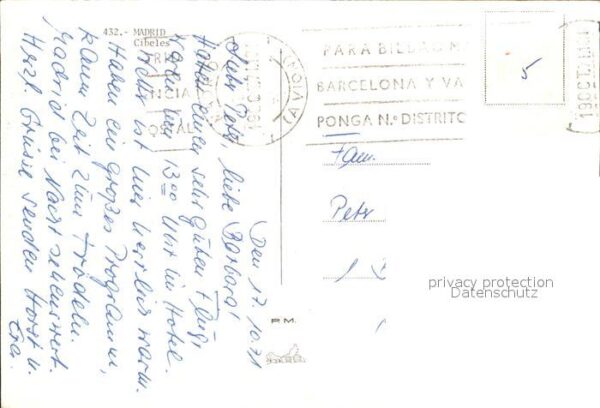 432.- MADRID
Cibeles
Den 17.10.71
liebe Barbara!
Haben einen sehr guten Flug,
waren um 13.00 Uhr im Hotel.
Wetter ist hier herrlich warm.
Haben ein großes Programm,
kaum Zeit zum Trödeln.
Madrid bei Nacht sehenswert.
Herzl. Grüsse senden Horst u.
Eva.
PARA BILBAO
BARCELONA Y VA
PONGA N.º DISTRITO
POSTAL
5
Fam.
Petr
privacy protection
Datenschutz
P.M.